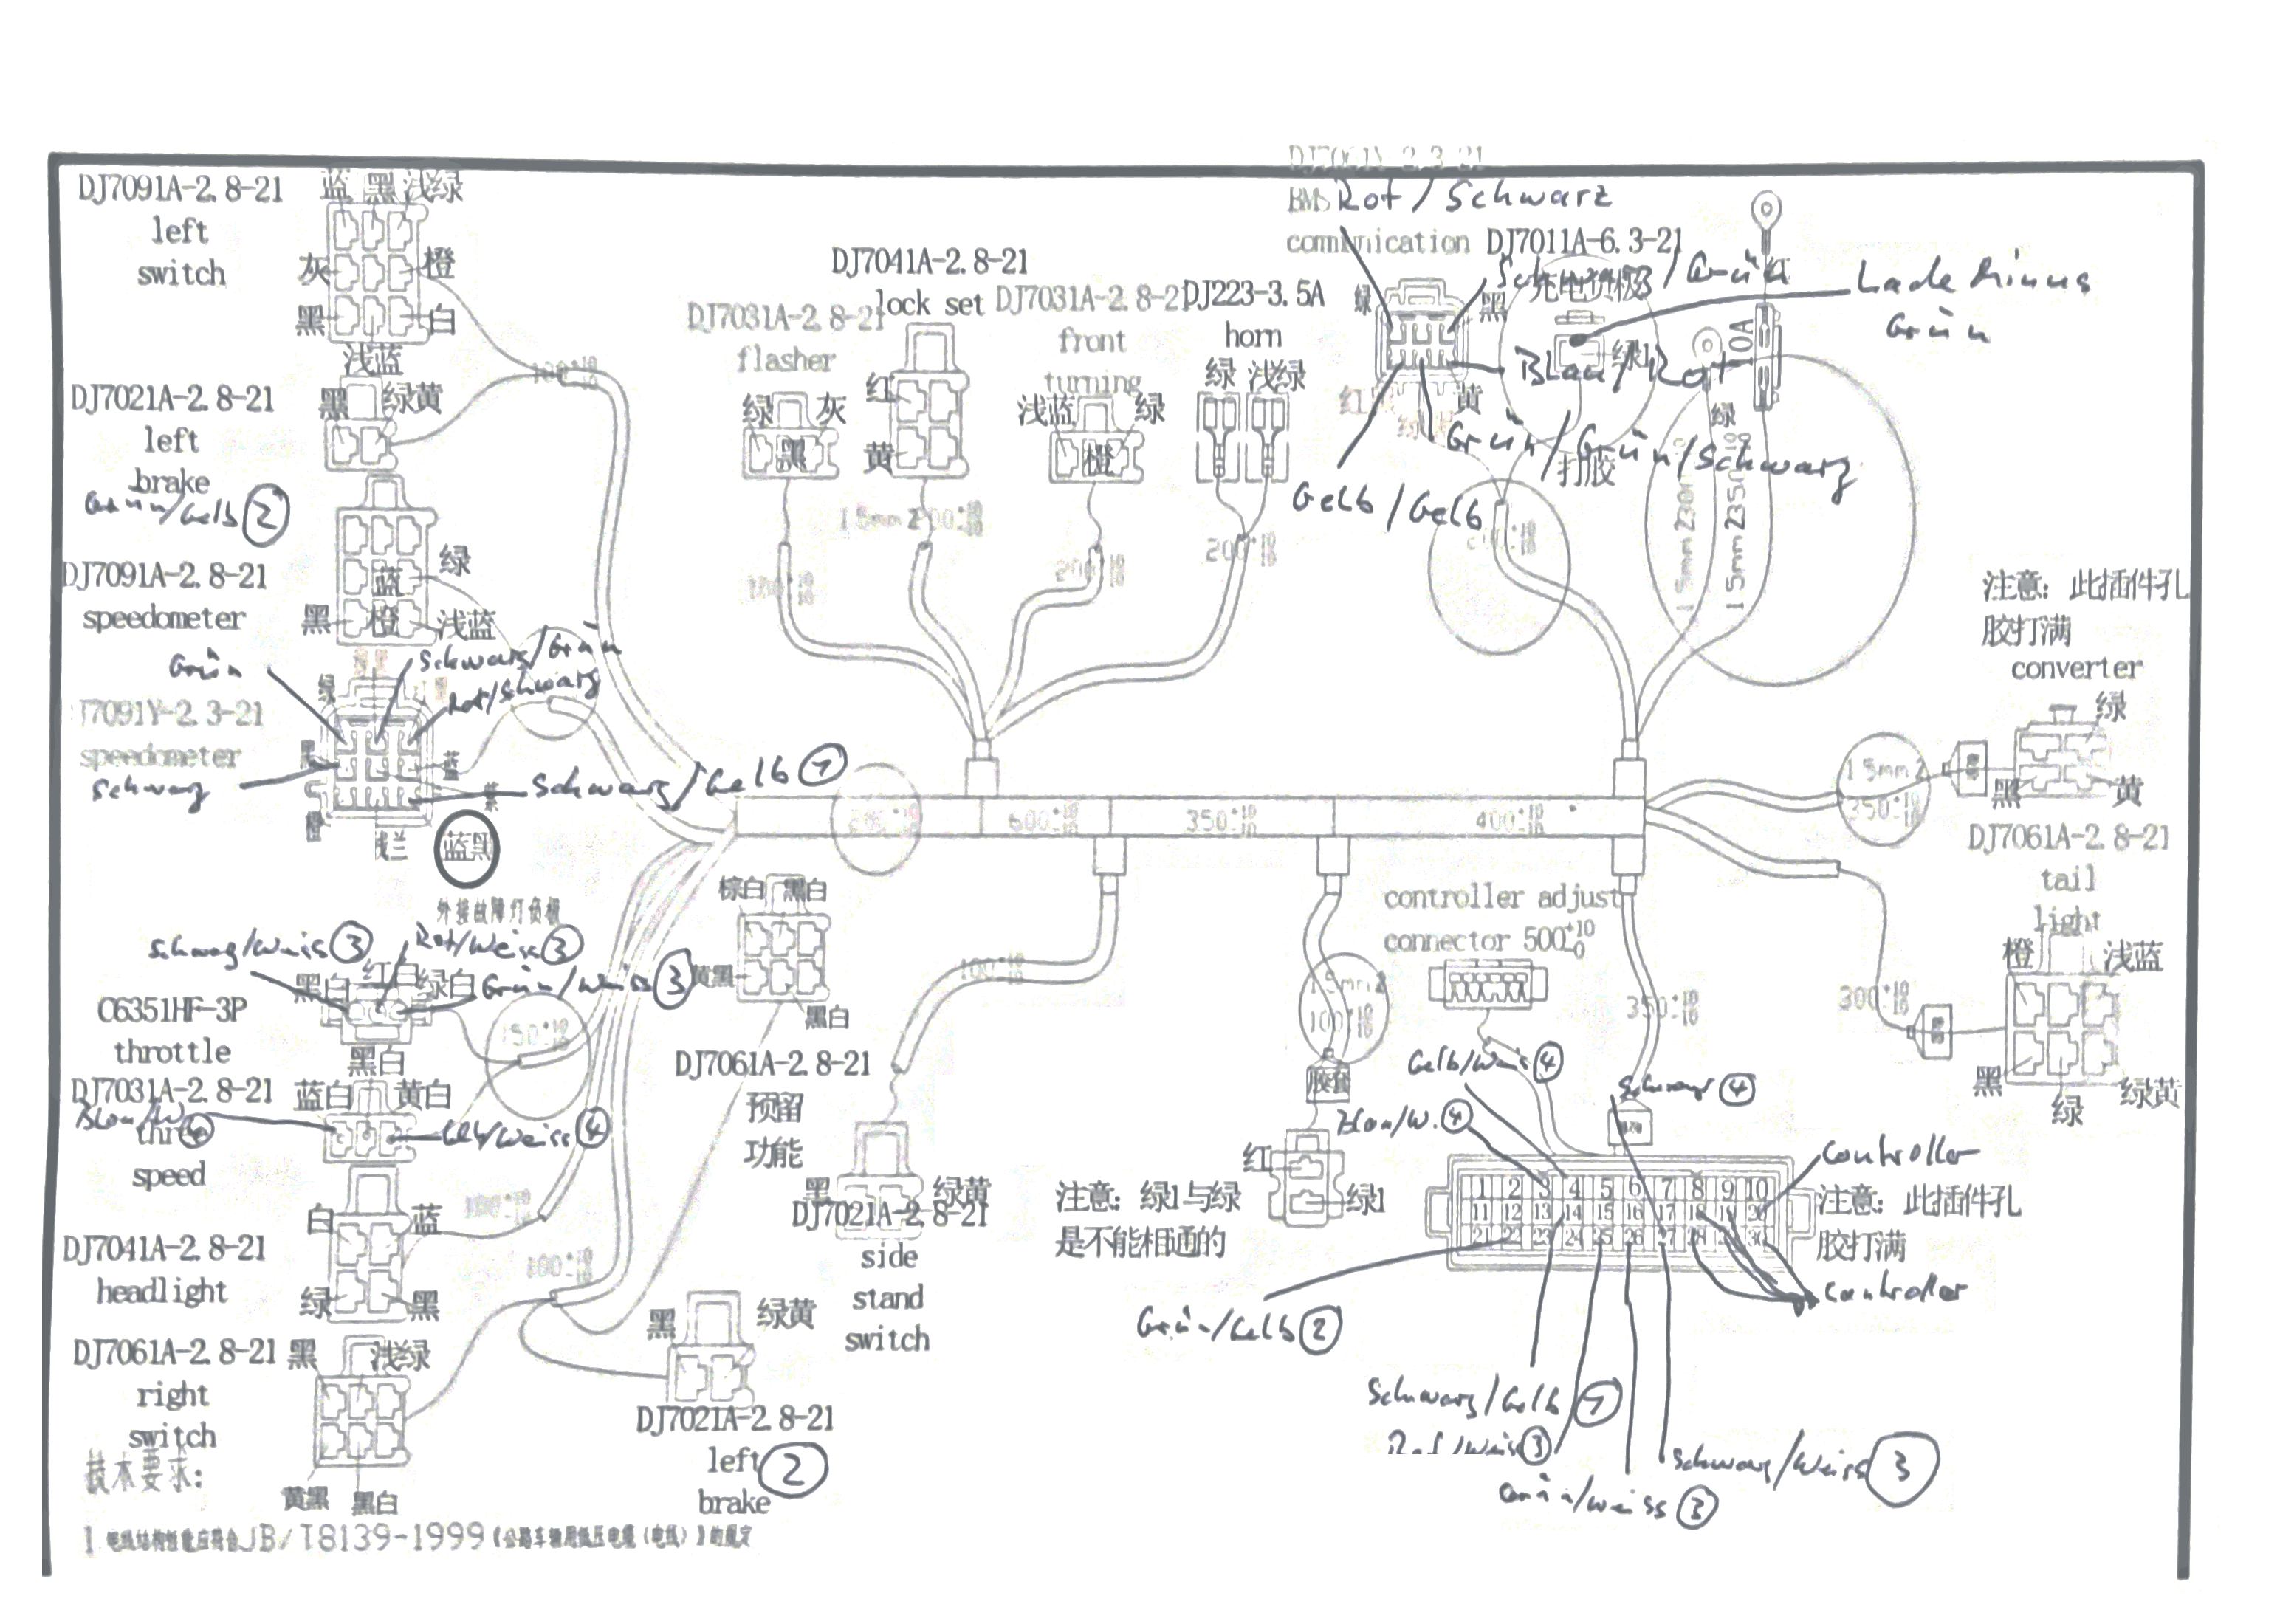 DJ7091A-2.8-21
left
switch
蓝 黑 浅绿
灰 橙
黑 白
浅蓝
DJ7021A-2.8-21
left
brake
黑 绿黄
Grün/Gelb ②
DJ7091A-2.8-21
speedometer
绿
蓝
黑 橙 浅蓝
Grün
Schwarz/Grün
Rot/Schwarz
绿
7091Y-2.3-21
speedometer
Schwarz
黑
蓝
Schwarz/Gelb
橙
浅兰
蓝黑
外接故障灯负极
Schwarz/Weiss ③
Rot/Weiss ③
Grün/Weiss ③
黑白 红白 绿白
C6351HF-3P
throttle
黑白
DJ7031A-2.8-21
蓝白 黄白
Blau/W ④
speed
Gelb/Weiss ④
白 蓝
DJ7041A-2.8-21
headlight
绿 黑
DJ7061A-2.8-21
right
switch
黑 浅绿
黄黑 黑白
技术要求:
DJ7031A-2.8-21
flasher
绿 灰
黑
DJ7041A-2.8-21
lock set
红
黄
DJ7031A-2.8-21
front
turning
浅蓝 绿
橙
DJ223-3.5A
horn
绿 浅绿
BMS
communication
Rot/Schwarz
DJ7011A-6.3-21
绿 黑
红 黄
充电负极
绿1
打胶
Lade Minus
Grün
Blau/Rot
Grün/Grün/Schwarz
Gelb/Gelb
红
10A
绿
注意：此插件孔
胶打满
converter
绿
黑 黄
DJ7061A-2.8-21
tail
light
橙 浅蓝
黑
绿 绿黄
600
350
400
棕白 黑白
黄黑
黑白
DJ7061A-2.8-21
预留
功能
黑 绿黄
DJ7021A-2.8-21
side
stand
switch
黑 绿黄
DJ7021A-2.8-21
left ②
brake
胶套
红
绿1
注意：绿1与绿
是不能相通的
controller adjust
connector 500
Gelb/Weiss ④
Blau/W. ④
Schwarz ④
1 2 3 4 5 6 7 8 9 10
11 12 13 14 15 16 17 18 19 20
21 22 23 24 25 26 27 28 29 30
Controller
注意：此插件孔
胶打满
Controller
Grün/Gelb ②
Schwarz/Gelb
Rot/Weiss ③
Grün/Weiss ③
Schwarz/Weiss ③
1 电线结构性能应符合JB/T8139-1999《公路车辆用低压电缆(电线)》的规定